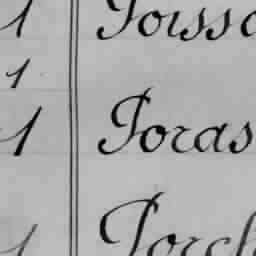 1 Poisso
1
1 Poras
1 Porch